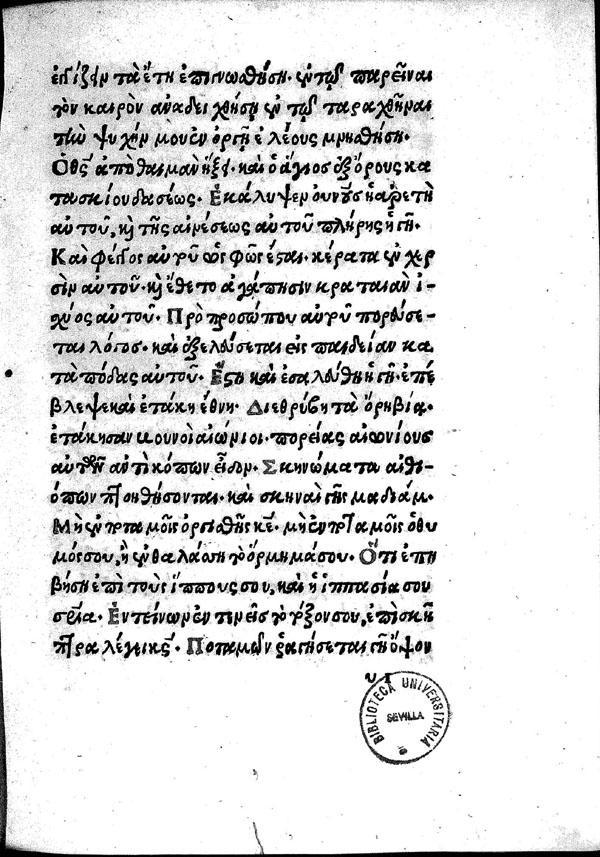 ἐγγίζειν τὰ ἔτη ἐπιγνωσθήσῃ. ἐν τῷ παρεῖναι
τὸν καιρὸν ἀναδειχθήσῃ. ἐν τῷ ταραχθῆναι
τὴν ψυχήν μου ἐν ὀργῇ ἐλέους μνησθήσῃ.
Ὁ θς ἀπὸ θαιμὰν ἥξει. καὶ ὁ ἅγιος ἐξ ὄρους κα
τασκίου δασέως. Ἐκάλυψεν οὐνοὺς ἡ ἀρετὴ
αὐτοῦ, καὶ τῆς αἰνέσεως αὐτοῦ πλήρης ἡ γῆ.
Καὶ φέγγος αὐτοῦ ὡς φῶς ἔσται. κέρατα ἐν χερ
σὶν αὐτοῦ. καὶ ἔθετο ἀγάπησιν κραταιὰν ἰ-
χύος αὐτοῦ. Πρὸ προσώπου αὐτοῦ πορεύσε-
ται λόγος. καὶ ἐξελεύσεται εἰς παιδείαν κα
τὰ πόδας αὐτοῦ. Ἔστη καὶ ἐσαλεύθη ἡ γῆ. ἐπέ
βλεψε καὶ ἐτάκη ἔθνη. Διεθρύβη τὰ ὄρη βίᾳ.
ἐτάκησαν βουνοὶ αἰώνιοι. πορείας αἰωνίους
αὐτῶν ἀντὶ κόπων εἶδον. Σκηνώματα αἰθι-
όπων πτοηθήσονται. καὶ σκηναὶ γῆς μαδιάμ.
Μὴ ἐν ποταμοῖς ὀργισθῇς κε. μὴ ἐν ποταμοῖς ὁ θυ
μός σου, ἢ ἐν θαλάσσῃ τὸ ὅρμημά σου. Ὅτι ἐπι
βήσῃ ἐπὶ τοὺς ἵππους σου, καὶ ἡ ἱππασία σου
σωτηρία. Ἐντείνων ἐντενεῖς τὸ τόξον σου, ἐπὶ σκῆ
πτρα λέγει κς. Ποταμῶν ῥαγήσεται γῆ ὄψον
BIBLIOTECA UNIVERSITARIA
SEVILLA